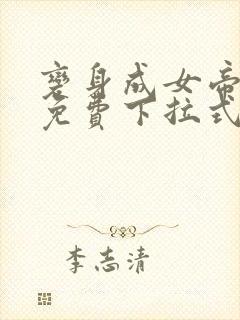 变身成女帝
免费下拉式
李志清